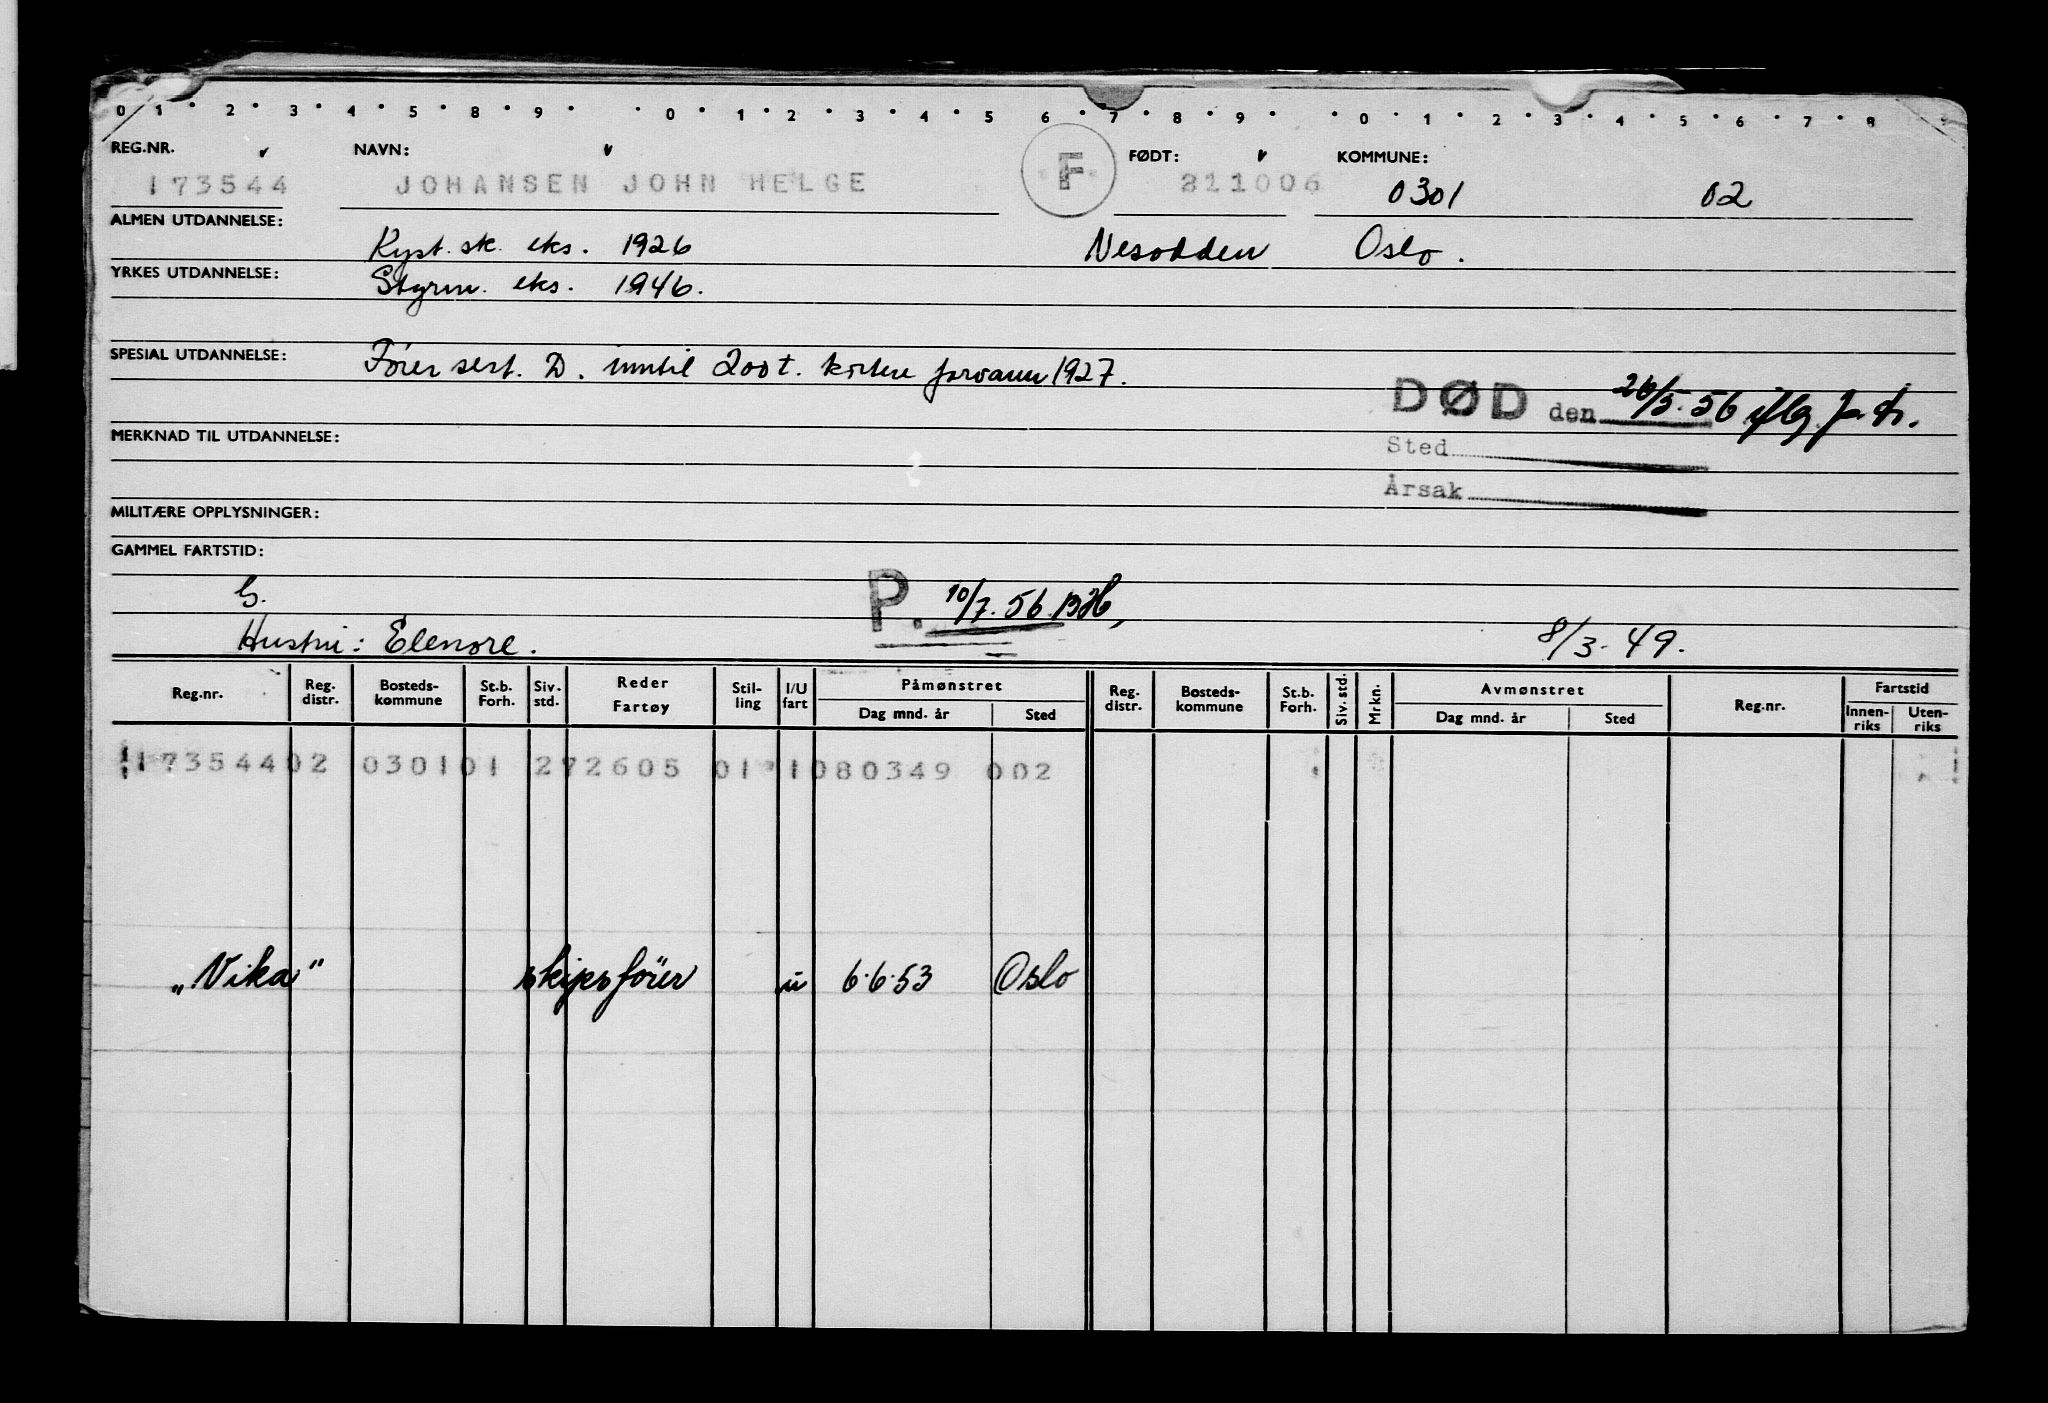 0 1 2 3 4 5 8 9 0 1 2 3 4 5 6 7 8 9 0 1 2 3 4 5 6 7 8
REG.NR. NAVN: F FØDT: KOMMUNE:
173544 JOHANSEN JOHN HELGE 211006 0301 02
ALMEN UTDANNELSE: Kyst. sk. eks. 1926 Nesodden Oslo.
YRKES UTDANNELSE: Styrm. eks. 1946.
SPESIAL UTDANNELSE: Fører sert. D. inntil 200 t. kortere farvann 1927.
DØD den 26/5. 56 iflg.
MERKNAD TIL UTDANNELSE: Sted
Årsak
MILITÆRE OPPLYSNINGER:
GAMMEL FARTSTID:
G. P. 10/7. 56.
Hustru: Elenore. 8/3. 49.
Reg.nr. Reg. distr. Bosteds-kommune St.b. Forh. Siv. std. Reder Fartøy Stil-ling I/U fart Påmønstret Dag mnd. år Sted Reg. distr. Bosteds-kommune St.b. Forh. Siv. std. Mrkn. Avmønstret Dag mnd. år Sted Reg.nr. Fartstid Innen-riks Uten-riks
173544 02 0301 01 2 72605 01 1 080349 002
„Vika" skipsfører u 6.6.53 Oslo